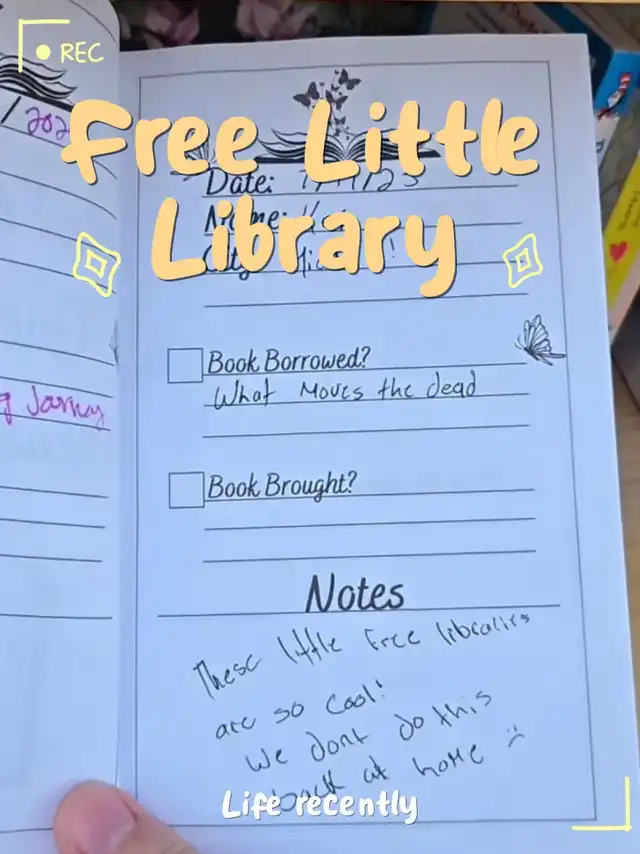 REC
Free Little
Library
202
Date:
Name:
City
Book Borrowed?
What Moves the dead
Book Brought?
Notes
These little free libraries
are so cool!
We dont do this
back at home :(
Life recently